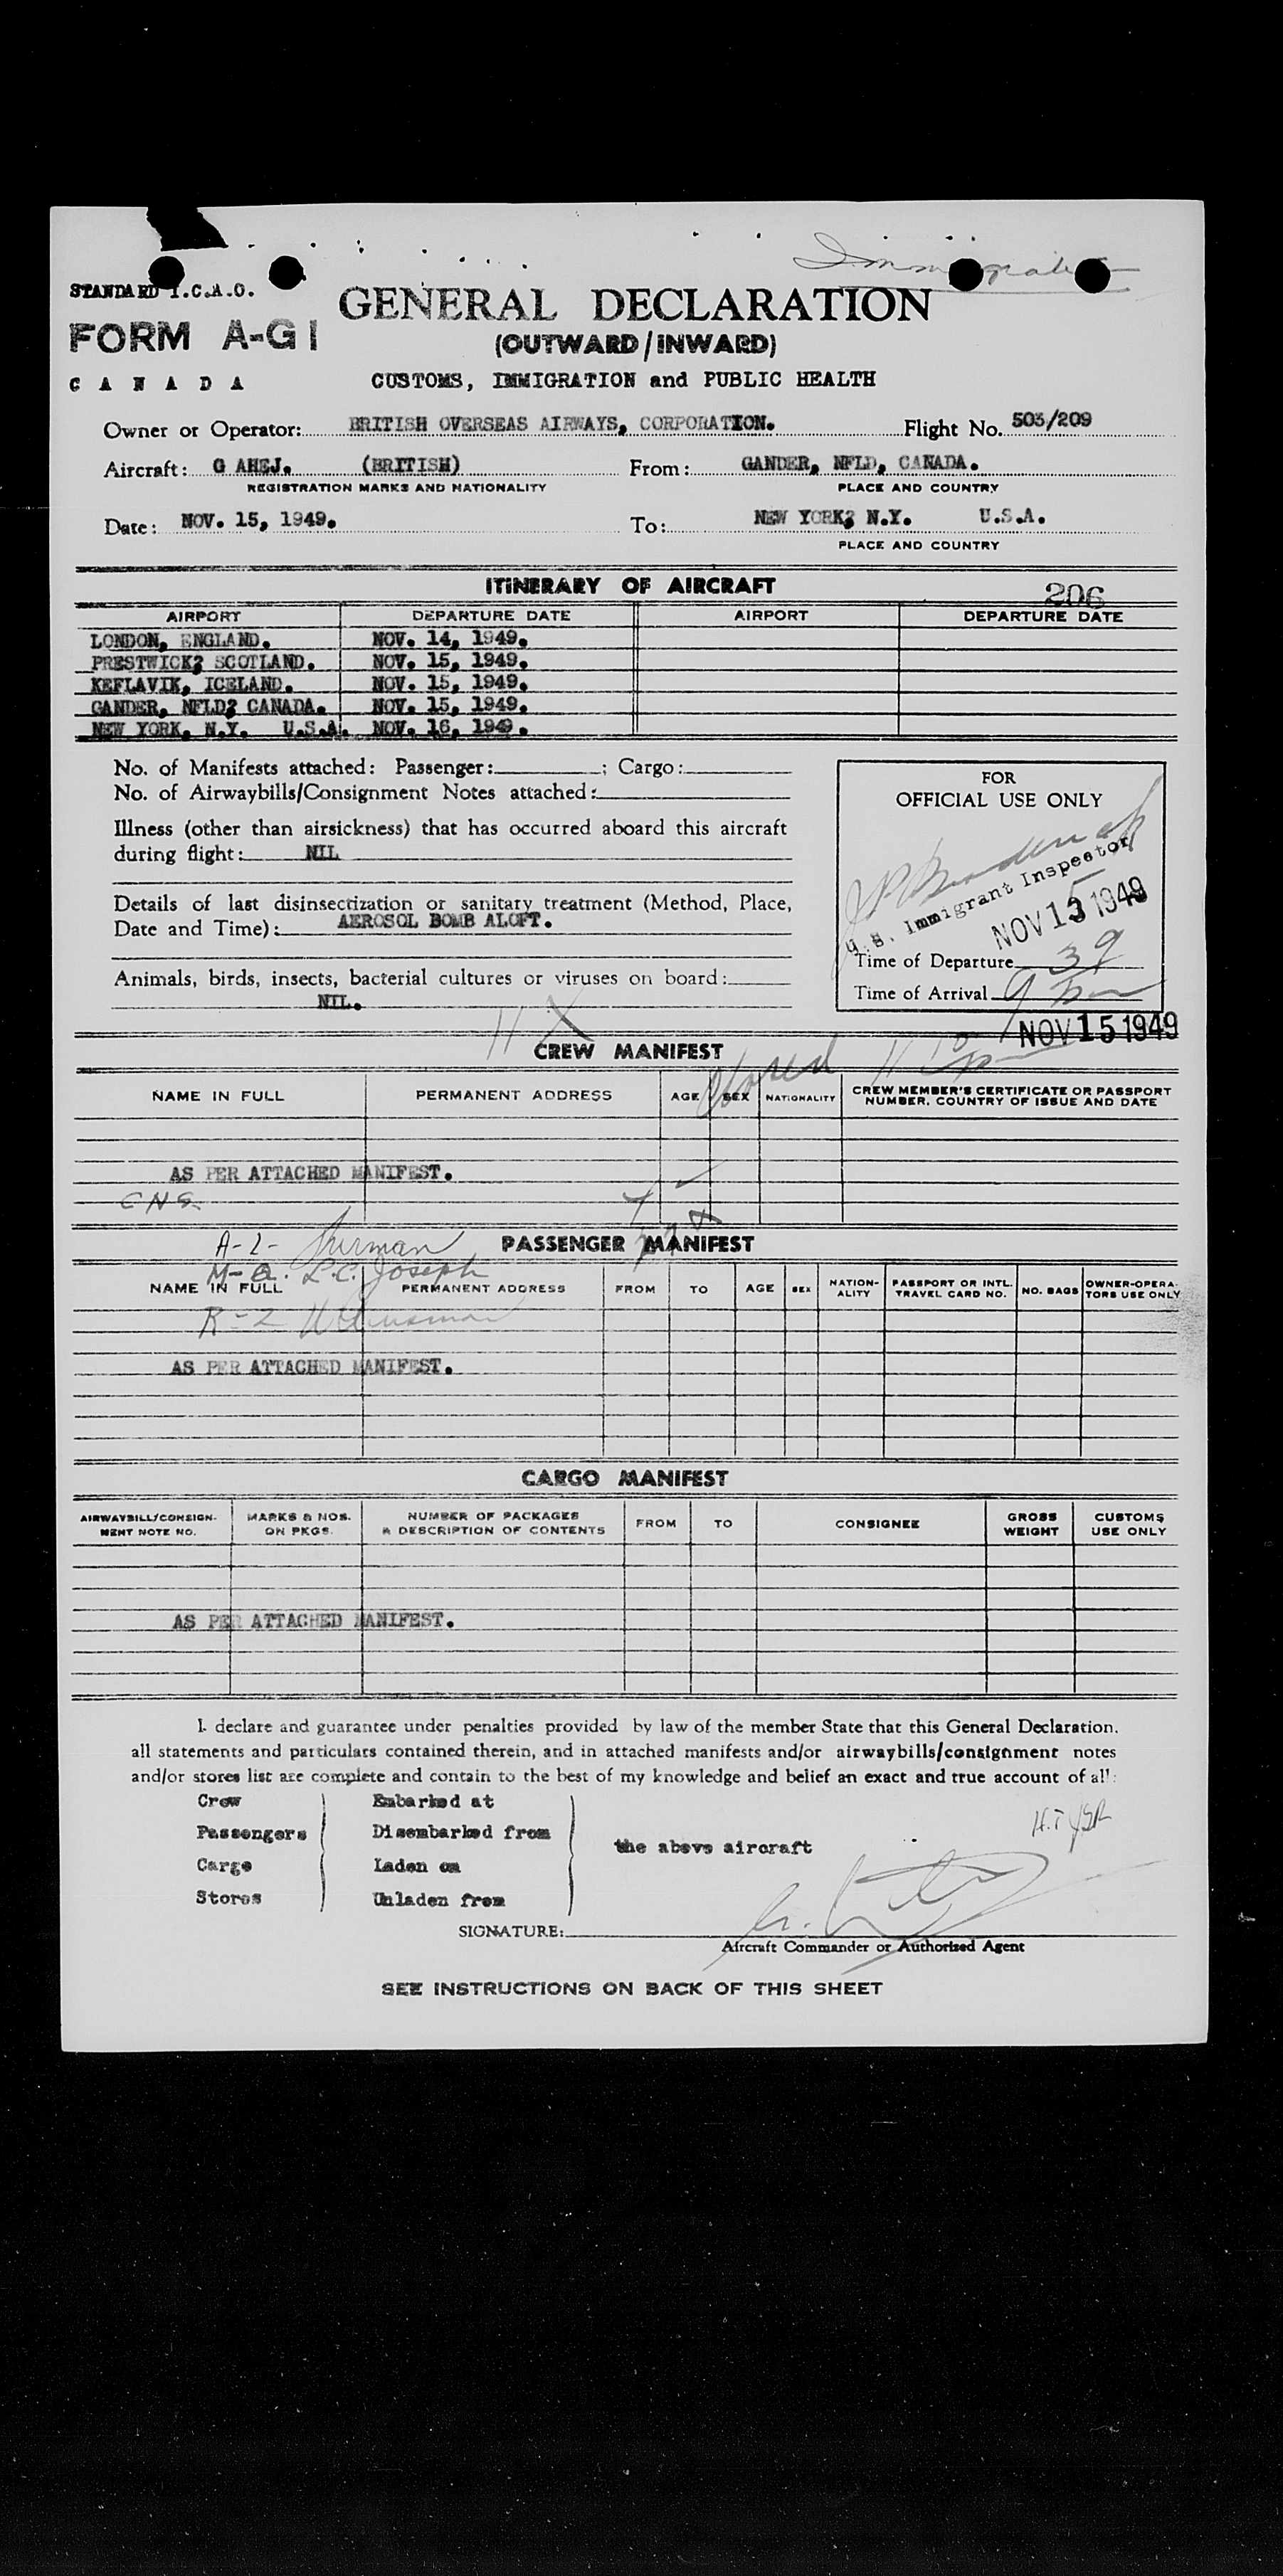 STANDARD I.C.A.O.
FORM A-G1
CANADA
GENERAL DECLARATION
(OUTWARD/INWARD)
CUSTOMS, IMMIGRATION and PUBLIC HEALTH
Owner or Operator: BRITISH OVERSEAS AIRWAYS, CORPORATION. Flight No. 503/209
Aircraft: G AHEJ. (BRITISH) From: GANDER, NFLD, CANADA.
REGISTRATION MARKS AND NATIONALITY PLACE AND COUNTRY
Date: NOV. 15, 1949. To: NEW YORK? N.Y. U.S.A.
PLACE AND COUNTRY
ITINERARY OF AIRCRAFT 206
AIRPORT DEPARTURE DATE AIRPORT DEPARTURE DATE
LONDON, ENGLAND. NOV. 14, 1949.
PRESTWICK? SCOTLAND. NOV. 15, 1949.
KEFLAVIK, ICELAND. NOV. 15, 1949.
GANDER, NFLD? CANADA. NOV. 15, 1949.
NEW YORK, N.Y. U.S.A. NOV. 16, 1949.
No. of Manifests attached: Passenger: ; Cargo:
No. of Airwaybills/Consignment Notes attached:
Illness (other than airsickness) that has occurred aboard this aircraft
during flight: NIL
Details of last disinsectization or sanitary treatment (Method, Place,
Date and Time): AEROSOL BOMB ALOFT.
Animals, birds, insects, bacterial cultures or viruses on board:
NIL.
FOR
OFFICIAL USE ONLY
U.S. Immigrant Inspector
NOV 15 1949
Time of Departure
Time of Arrival
NOV 15 1949
CREW MANIFEST
NAME IN FULL PERMANENT ADDRESS AGE SEX NATIONALITY CREW MEMBER'S CERTIFICATE OR PASSPORT
NUMBER, COUNTRY OF ISSUE AND DATE
AS PER ATTACHED MANIFEST.
CNS
A-2- Sherman
PASSENGER MANIFEST
M-Q. L.C. Joseph
NAME IN FULL PERMANENT ADDRESS FROM TO AGE SEX NATION-
ALITY PASSPORT OR INTL.
TRAVEL CARD NO. NO. BAGS OWNER-OPERA-
TORS USE ONLY
R-2
AS PER ATTACHED MANIFEST.
CARGO MANIFEST
AIRWAYBILL/CONSIGN-
MENT NOTE NO. MARKS & NOS.
ON PKGS. NUMBER OF PACKAGES
& DESCRIPTION OF CONTENTS FROM TO CONSIGNEE GROSS
WEIGHT CUSTOMS
USE ONLY
AS PER ATTACHED MANIFEST.
I declare and guarantee under penalties provided by law of the member State that this General Declaration,
all statements and particulars contained therein, and in attached manifests and/or airwaybills/consignment notes
and/or stores list are complete and contain to the best of my knowledge and belief an exact and true account of all:
Crew Embarked at
Passengers Disembarked from
the above aircraft
Cargo Laden on
Stores Unladen from
SIGNATURE:
Aircraft Commander or Authorized Agent
SEE INSTRUCTIONS ON BACK OF THIS SHEET